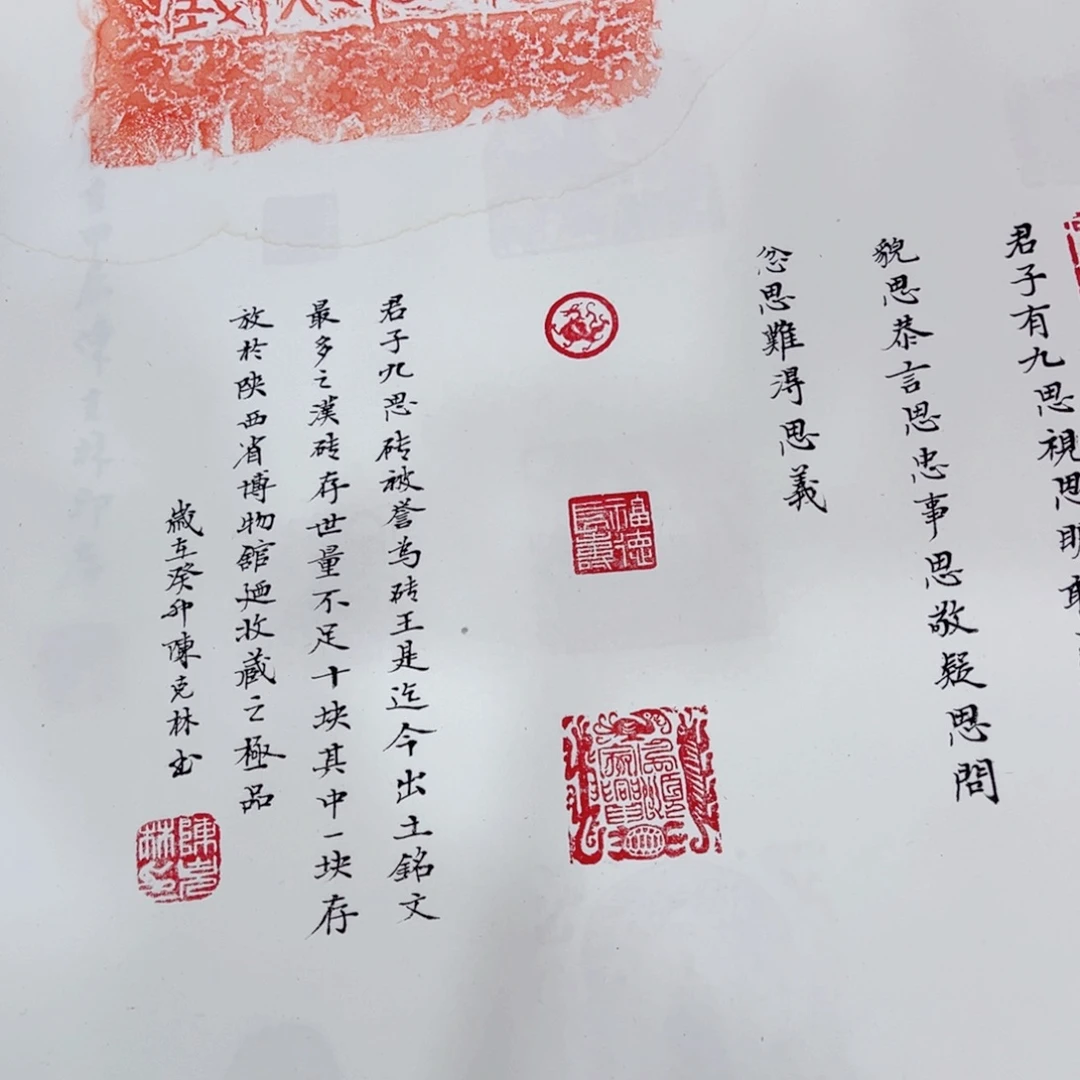 君子有九思視思明
貌思恭言思忠事思敬疑思問
忿思難得思義
福德
長壽
君子九思砖被誉為砖王是迄今出土銘文
最多之漢砖存世量不足十块其中一块存
放於陕西省博物館廼收藏之極品
歲在癸卯陳克林书
陳克
林